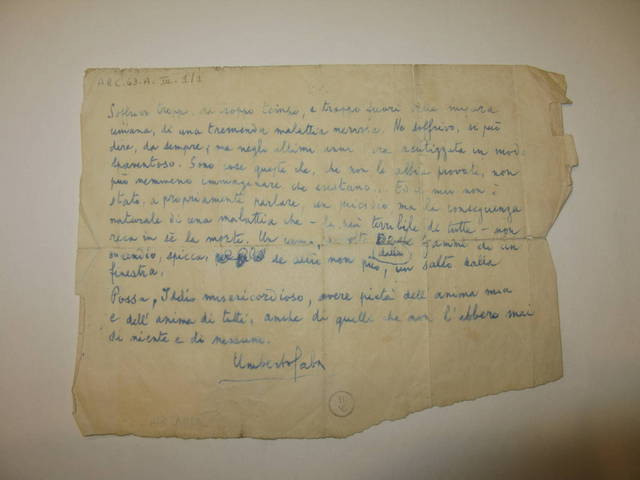 ARC. 63. A. III. 1/1
Soffrivo troppo, da troppo tempo, e troppo fuori della misura
umana, di una tremenda malattia nervosa. Ne soffrivo, si può
dire, da sempre; ma negli ultimi anni era acutizzata in modo
spaventoso. Sono cose queste che, chi non le abbia provate, non
può nemmeno immaginare che esistano. Ed il mio non è
stato, a propriamente parlare, un suicidio ma la conseguenza
naturale di una malattia che – la più terribile di tutte – non
reca in sè la morte. Un uomo, dalle fiamme di un
incendio, spicca, se altro non può, un salto dalla
finestra.
Possa, Iddio misericordioso, avere pietà dell'anima mia
e dell'anima di tutti, anche di quelli che non l'ebbero mai
di niente e di nessuno.
Umberto Saba